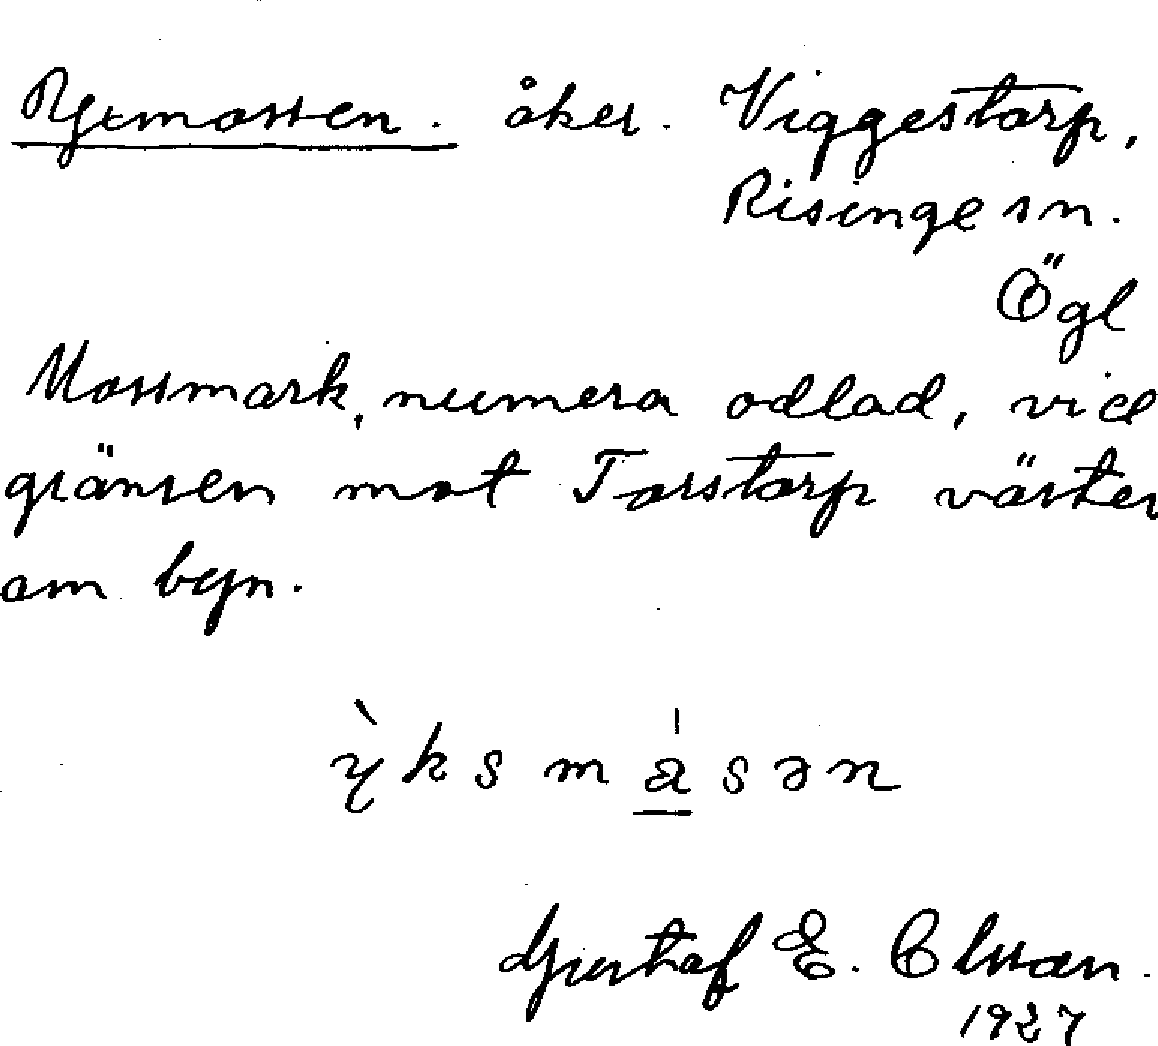 Yxmossen. åker. Viggestorp,
Risinge sn.
Ögl
Mossmark, numera odlad, vid
gränsen mot Torstorp väster
om byn.
ỳksmá̲sən
Gustaf E. Olsson.
1927